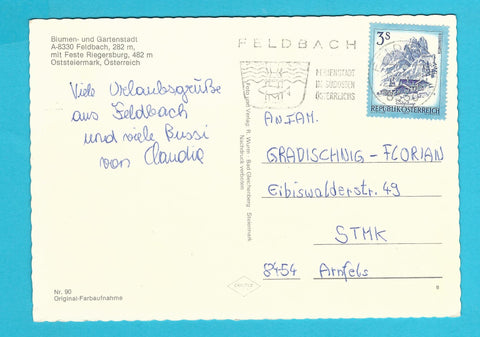 Blumen- und Gartenstadt
A-8330 Feldbach, 282 m,
mit Feste Riegersburg, 482 m
Oststeiermark, Österreich
Viele Urlaubsgrüße
aus Feldbach
und viele Bussi
von Claudia
Nr. 90
Original-Farbaufnahme
Foto und Verlag R. Wurm - Bad Gleichenberg - Steiermark
Nachdruck verboten
FELDBACH
FERIENSTADT
IM SÜDOSTEN
ÖSTERREICHS
3 S
REPUBLIK ÖSTERREICH
AN FAM.
GRADISCHNIG - FLORIAN
Eibiswalderstr. 49
STMK
8454 Arnfels